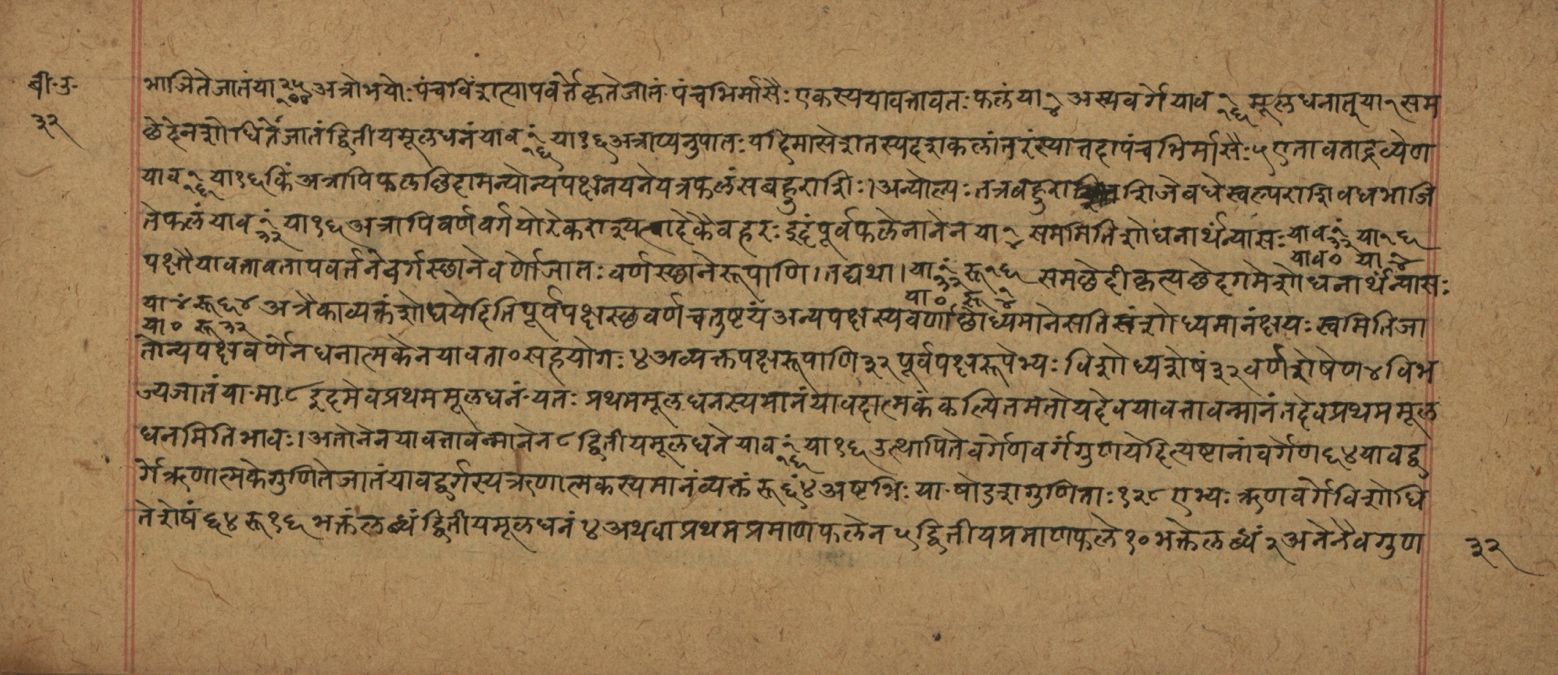 बी·उ·
३२
भाजितेजातंया २५/२०० अत्रोभयोः पंचविंशत्यापवर्त्तेकृतेजातं पंचभिर्मासैः एकस्ययावत्तावतः फलं या १/४ अस्यवर्गे याव १/१६ मूलधनात् या १ सम
छेदेनशोधितेजातंद्वितीयमूलधनं याव १ं/१६ या १६ अत्राप्यनुपातः यदिमासेशतस्यदशकलांतरंस्यात्तदापंचभिर्मासैः ५ एतावताद्रव्येण
याव १ं/१६ या १६ किं अत्रापिफलछिदामन्योन्यपक्षनयनेयत्रफलंसबहुराशिः। अन्योल्पः तत्रबहुराशिजेबधेस्वल्पराशिवधभाजि
तेफलं याव १ं/३२ या १६ अत्रापिवर्णवर्गयोरेकराश्यत्वादेकैवहरः इदंपूर्वफलेनानेन या १/४ सममितिशोधनार्थंन्यासः याव १ं/३२ या १६
याव ० या १/४
पक्षौयावत्तावतापवर्त्तनेवर्गस्छानेवर्णोजातः वर्णस्छानेरूपाणि। तद्यथा। या १ं/३२ रू १६ समछेदीकृत्यछेदगमेशोधनार्थंन्यासः
या ० रू १/४
या ४ं रू ६४ अत्रैकाव्यक्तंशोधयेदितिपूर्वपक्षस्छवर्णचतुष्टयंअन्यपक्षस्यवर्णाछोध्यमानेसतिस्वंशोध्यमानंक्षयः स्वमितिजा
या ० रू ३२
तोन्यपक्षवर्णेनधनात्मकेनयावता ० सहयोगः ४ अव्यक्तपक्षरूपाणि ३२ पूर्वपक्षरूपेभ्यः विशोध्यशेषं ३२ वर्णशेषेण ४ विभ
ज्यजातंया·मा ८ इदमेवप्रथममूलधनं यतः प्रथममूलधनस्यमानंयावदात्मकंकल्पितमतोयदेवयावत्तावन्मानंतदेवप्रथममूल
धनमितिभावः। अतोनेनयावत्तावन्मानेन ८ द्वितीयमूलधने याव १ं/१६ या १६ उत्थापितेवर्गेणवर्गंगुणयेदित्यष्टानांवर्गेण ६४ यावद्व
र्गेऋणात्मकेगुणितेजातंयावद्वर्गस्यऋणात्मकस्यमानंव्यक्तं रू ६ं४ अष्टभिः या·षोडशगुणिताः १२८ एभ्यः ऋणवर्गेविशोधि
तेशेषं ६४ रू १६ भक्तंलब्धंद्वितीयमूलधनं ४ अथवाप्रथमप्रमाणफलेन ५ द्वितीयप्रमाणफले १० भक्तेलब्धं २ अनेनैवगुण
३२